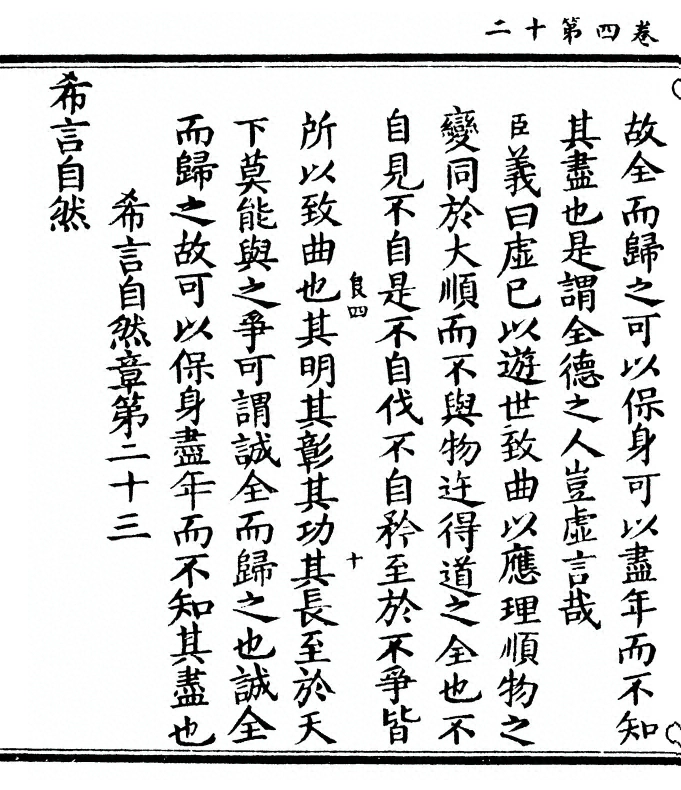 卷四第十二
故全而歸之可以保身可以盡年而不知
其盡也是謂全德之人豈虛言哉
臣義曰虛已以遊世致曲以應理順物之
變同於大順而不與物迕得道之全也不
自見不自是不自伐不自矜至於不爭皆
良四
十
所以致曲也其明其彰其功其長至於天
下莫能與之爭可謂誠全而歸之也誠全
而歸之故可以保身盡年而不知其盡也
希言自然章第二十三
希言自然